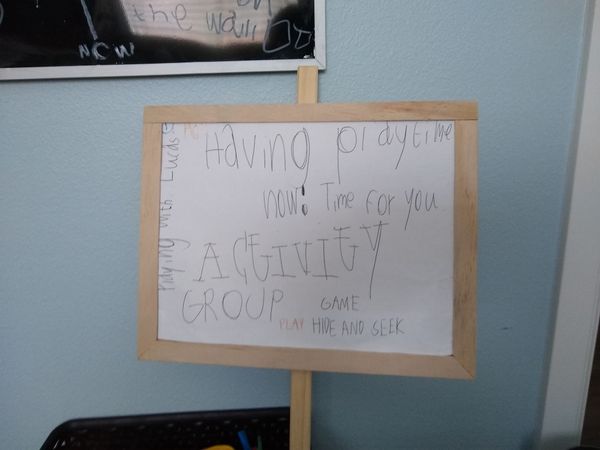 the wall
NOW
Playing with Lucas
Having playtime
now! Time for you
ACTIVITY
GROUP
GAME
PLAY HIDE AND SEEK